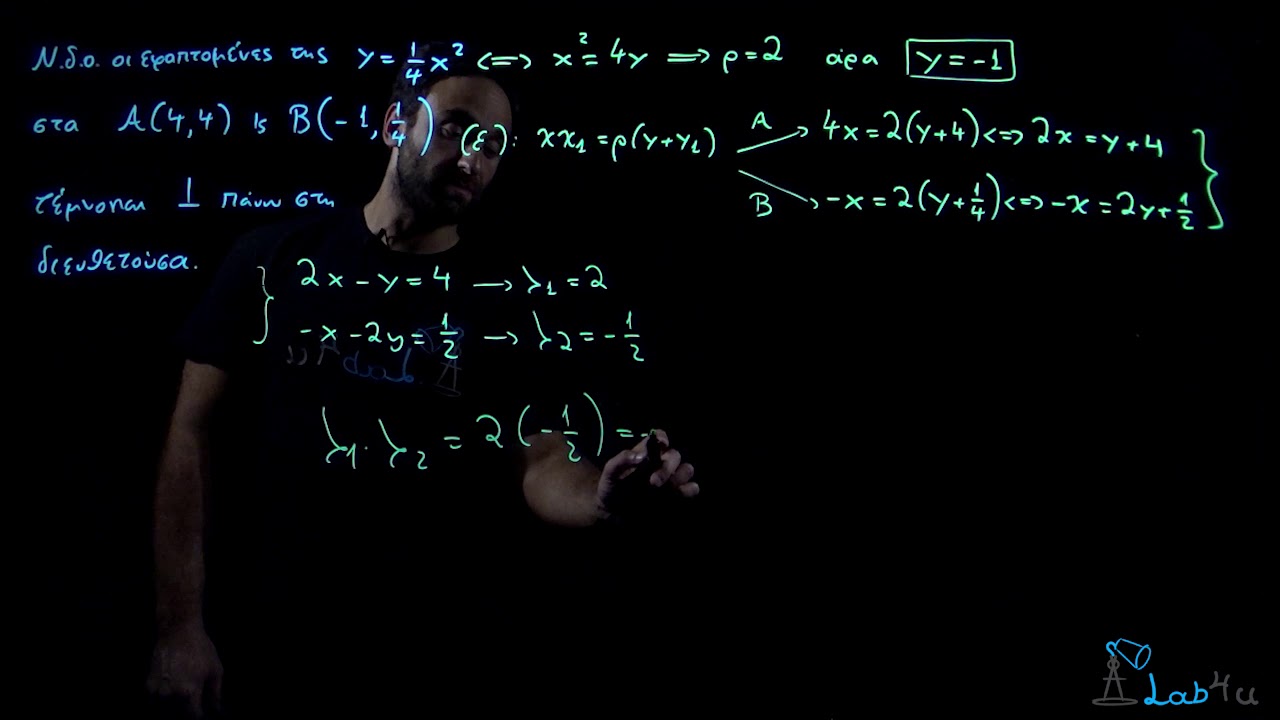 Ν.δ.ο. οι εφαπτομένες της y = 1/4 x² <=> x² = 4y => ρ = 2 άρα y = -1
στα A(4,4) & B(-1, 1/4) (ε): xx₁ = ρ(y+y₁) A 4x = 2(y+4) <=> 2x = y+4 }
τέμνονται ⊥ πάνω στη B -x = 2(y+1/4) <=> -x = 2y+1/2
διευθετούσα.
{ 2x - y = 4 → λ₁ = 2
-x - 2y = 1/2 → λ₂ = -1/2
λ₁ · λ₂ = 2(-1/2) = -
Lab4u